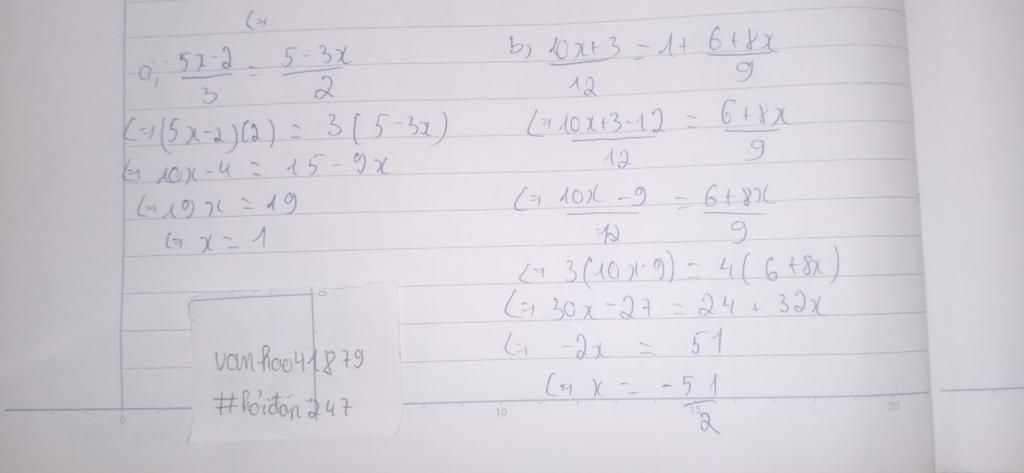 (=>
a, (5x-2)/3 = (5-3x)/2
(=> (5x-2)(2) = 3(5-3x)
(=> 10x-4 = 15-9x
(=> 19x = 19
(=> x = 1
b, (10x+3)/12 = 1 + (6+8x)/9
(=> (10x+3-12)/12 = (6+8x)/9
(=> (10x-9)/12 = (6+8x)/9
(=> 3(10x-9) = 4(6+8x)
(=> 30x-27 = 24+32x
(=> -2x = 51
(=> x = -51/2
vanhoo41879
#hỏiđán247
0
0
10
15
20